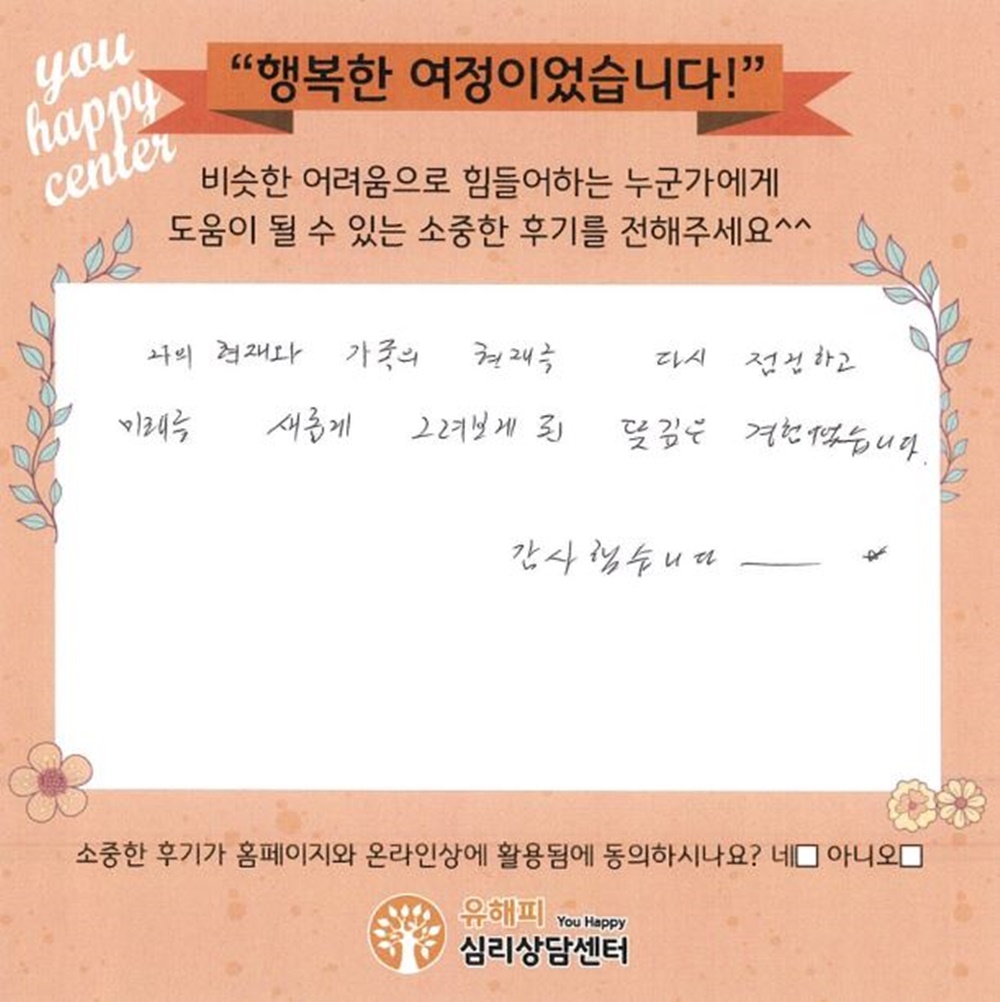 you
happy
center
“행복한 여정이었습니다!”
비슷한 어려움으로 힘들어하는 누군가에게
도움이 될 수 있는 소중한 후기를 전해주세요^^
나의 현재와 가족의 현재를 다시 점검하고
미래를 새롭게 그려보게 된 뜻깊은 경험이었습니다.
감사했습니다
소중한 후기가 홈페이지와 온라인상에 활용됨에 동의하시나요? 네□ 아니오□
유해피 You Happy
심리상담센터